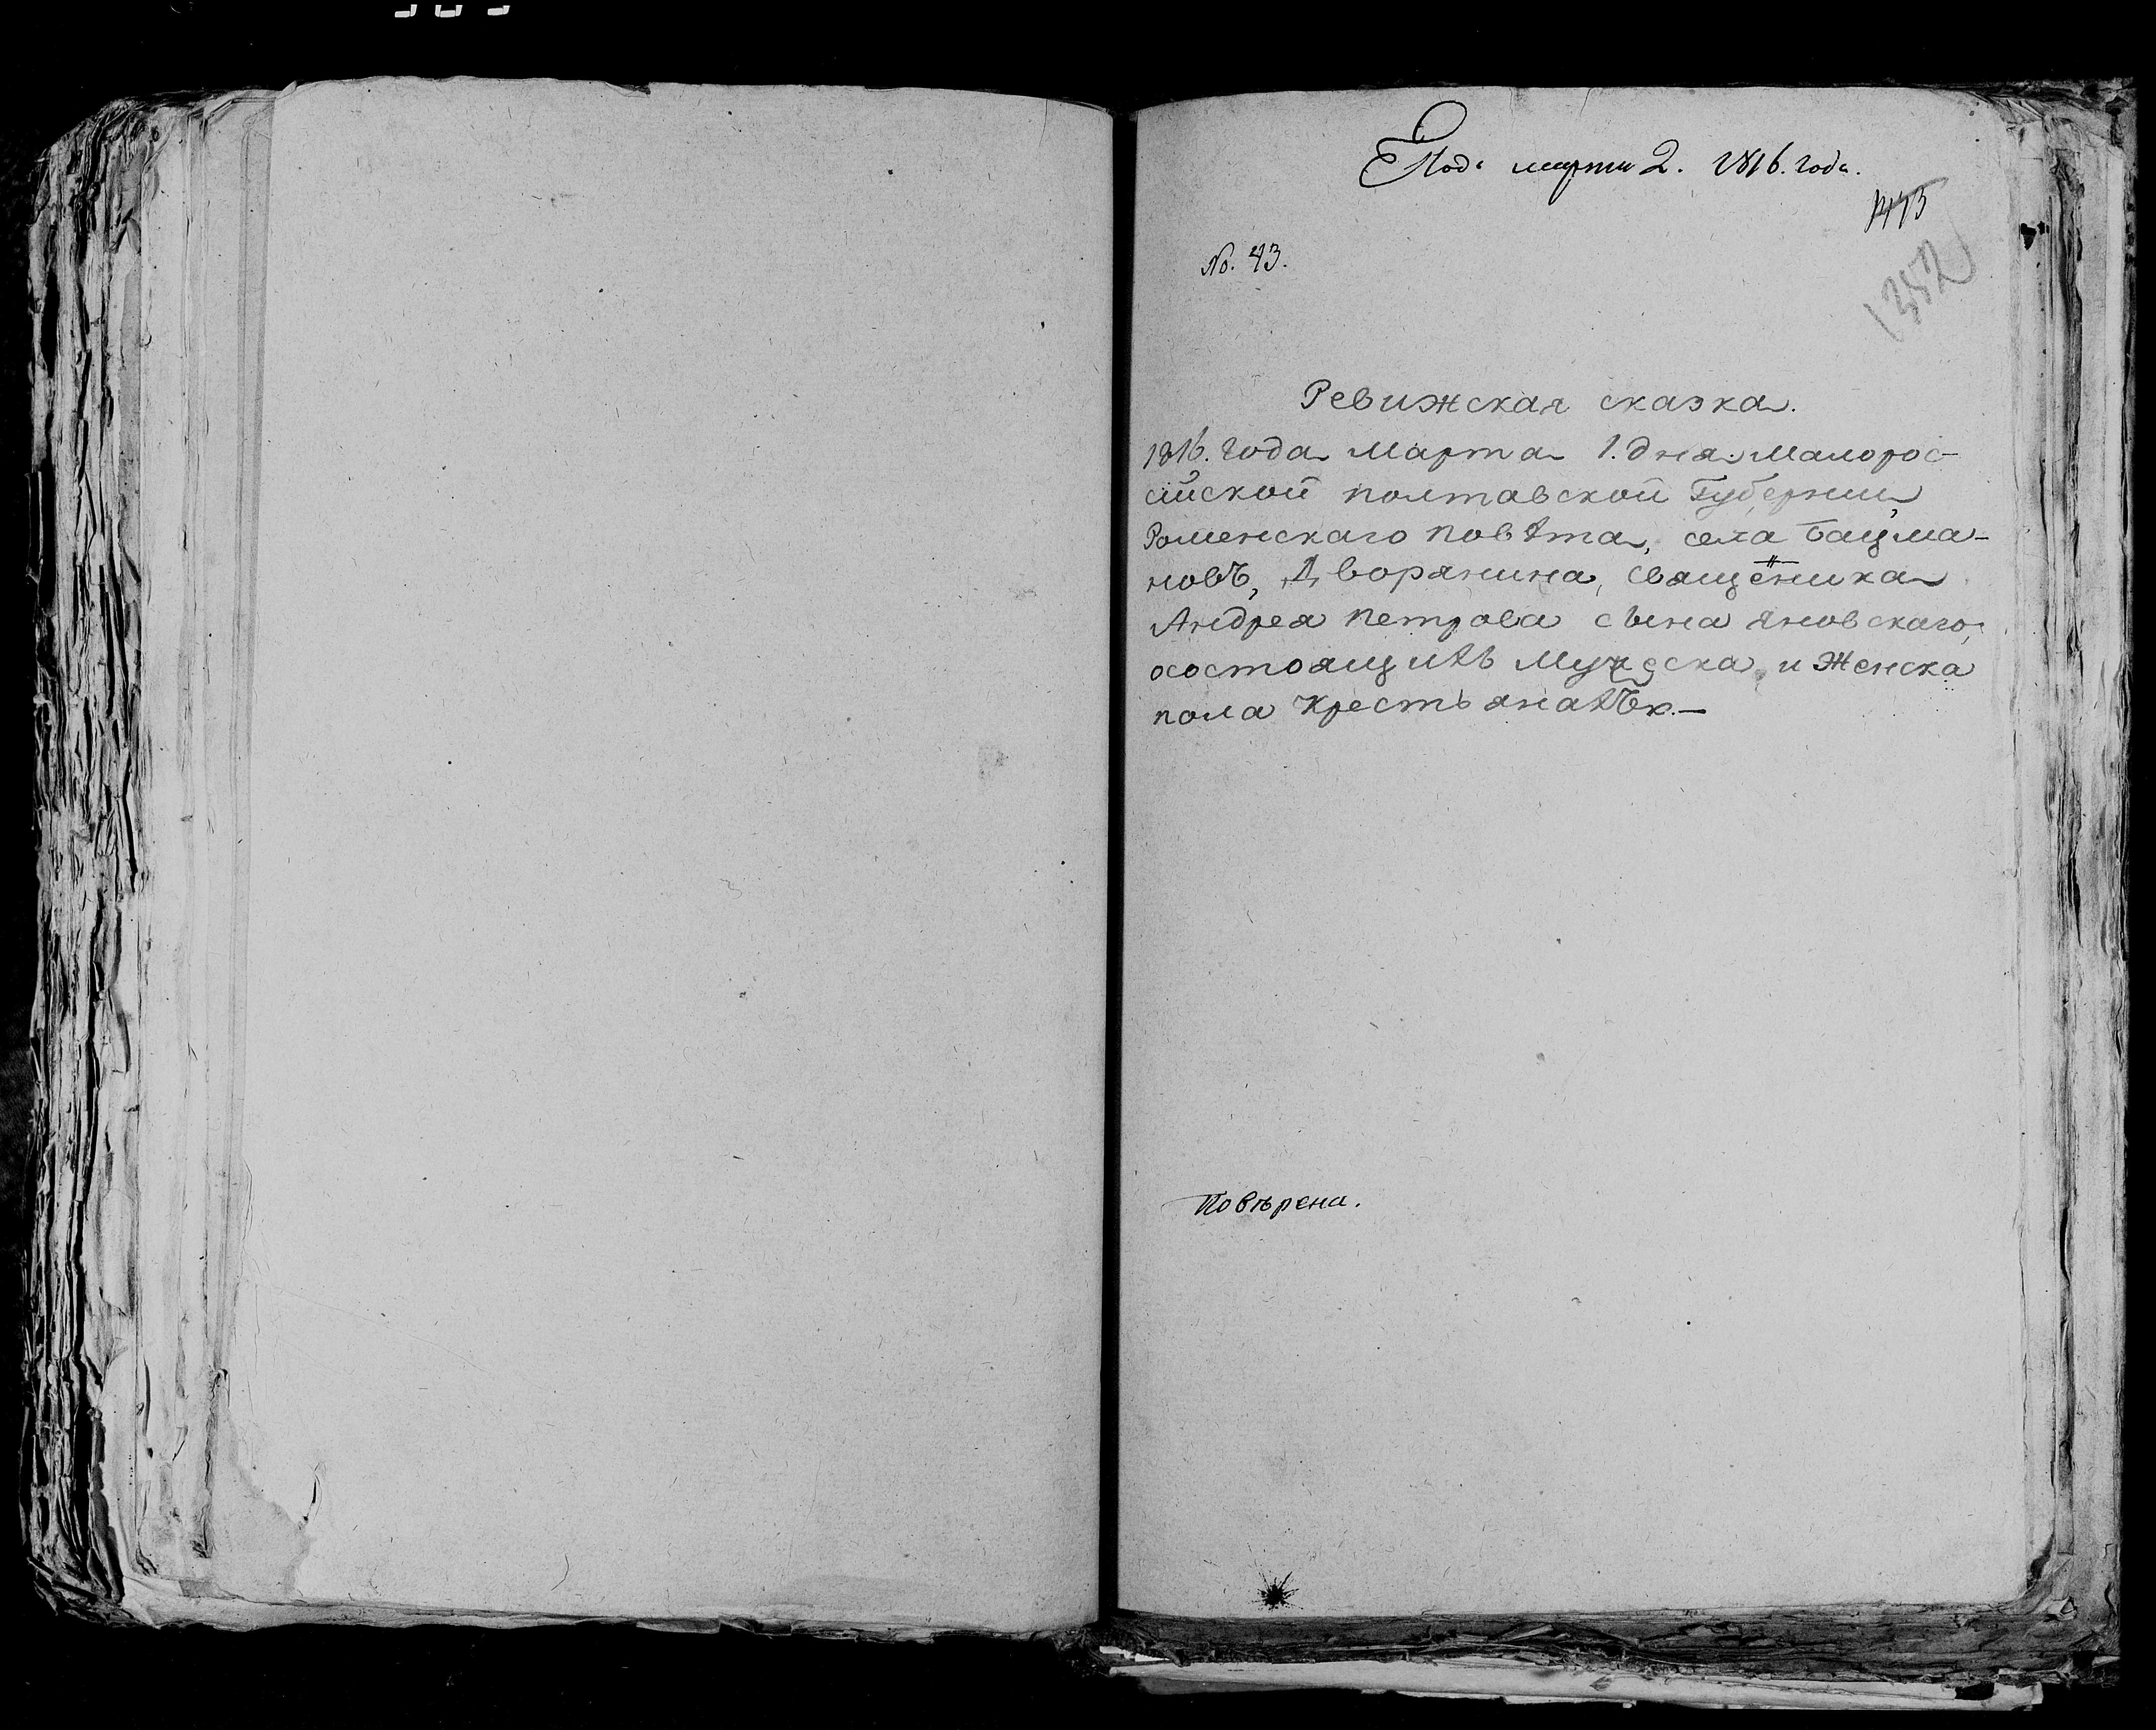 Под. марта 2. 1816. года.
1352
No. 43.
Ревижская сказка.
1816. года марта 1. дня малорос-
сийской полтавской Губернии
Роменскаго повѣта, села Бацма-
новъ, Дворянина, священика
Андрея петрова сына яновскаго,
осостоящихъ мужеска и женска
пола крестьянахъ.—
Повѣрена.